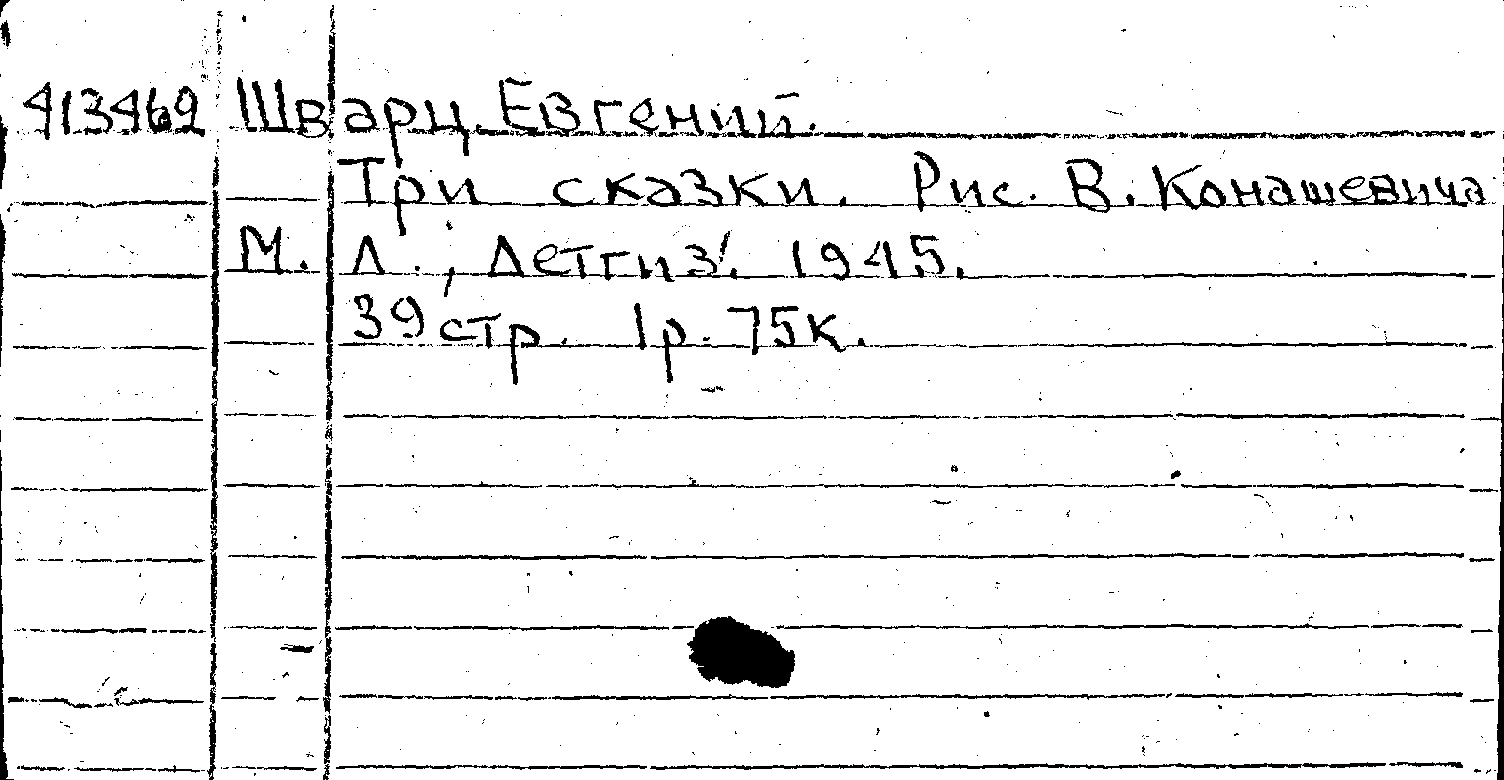 413469 Шварц. Евгений.
Три сказки. Рис. В. Конашевича
М. Л., Детгиз. 1945.
39 стр. 1р. 75к.